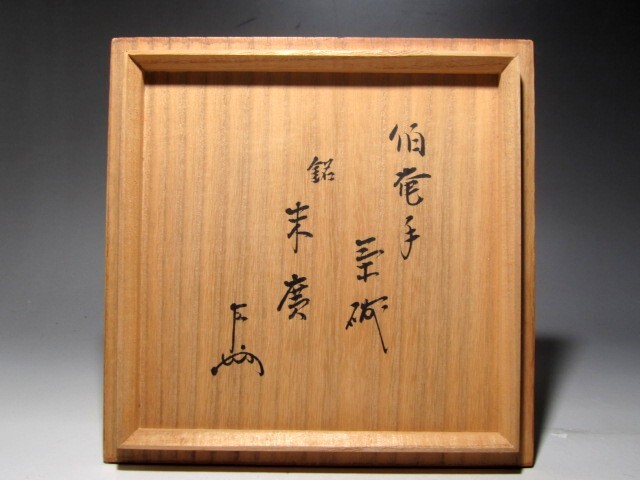 伯庵手
茶碗
銘
末廣